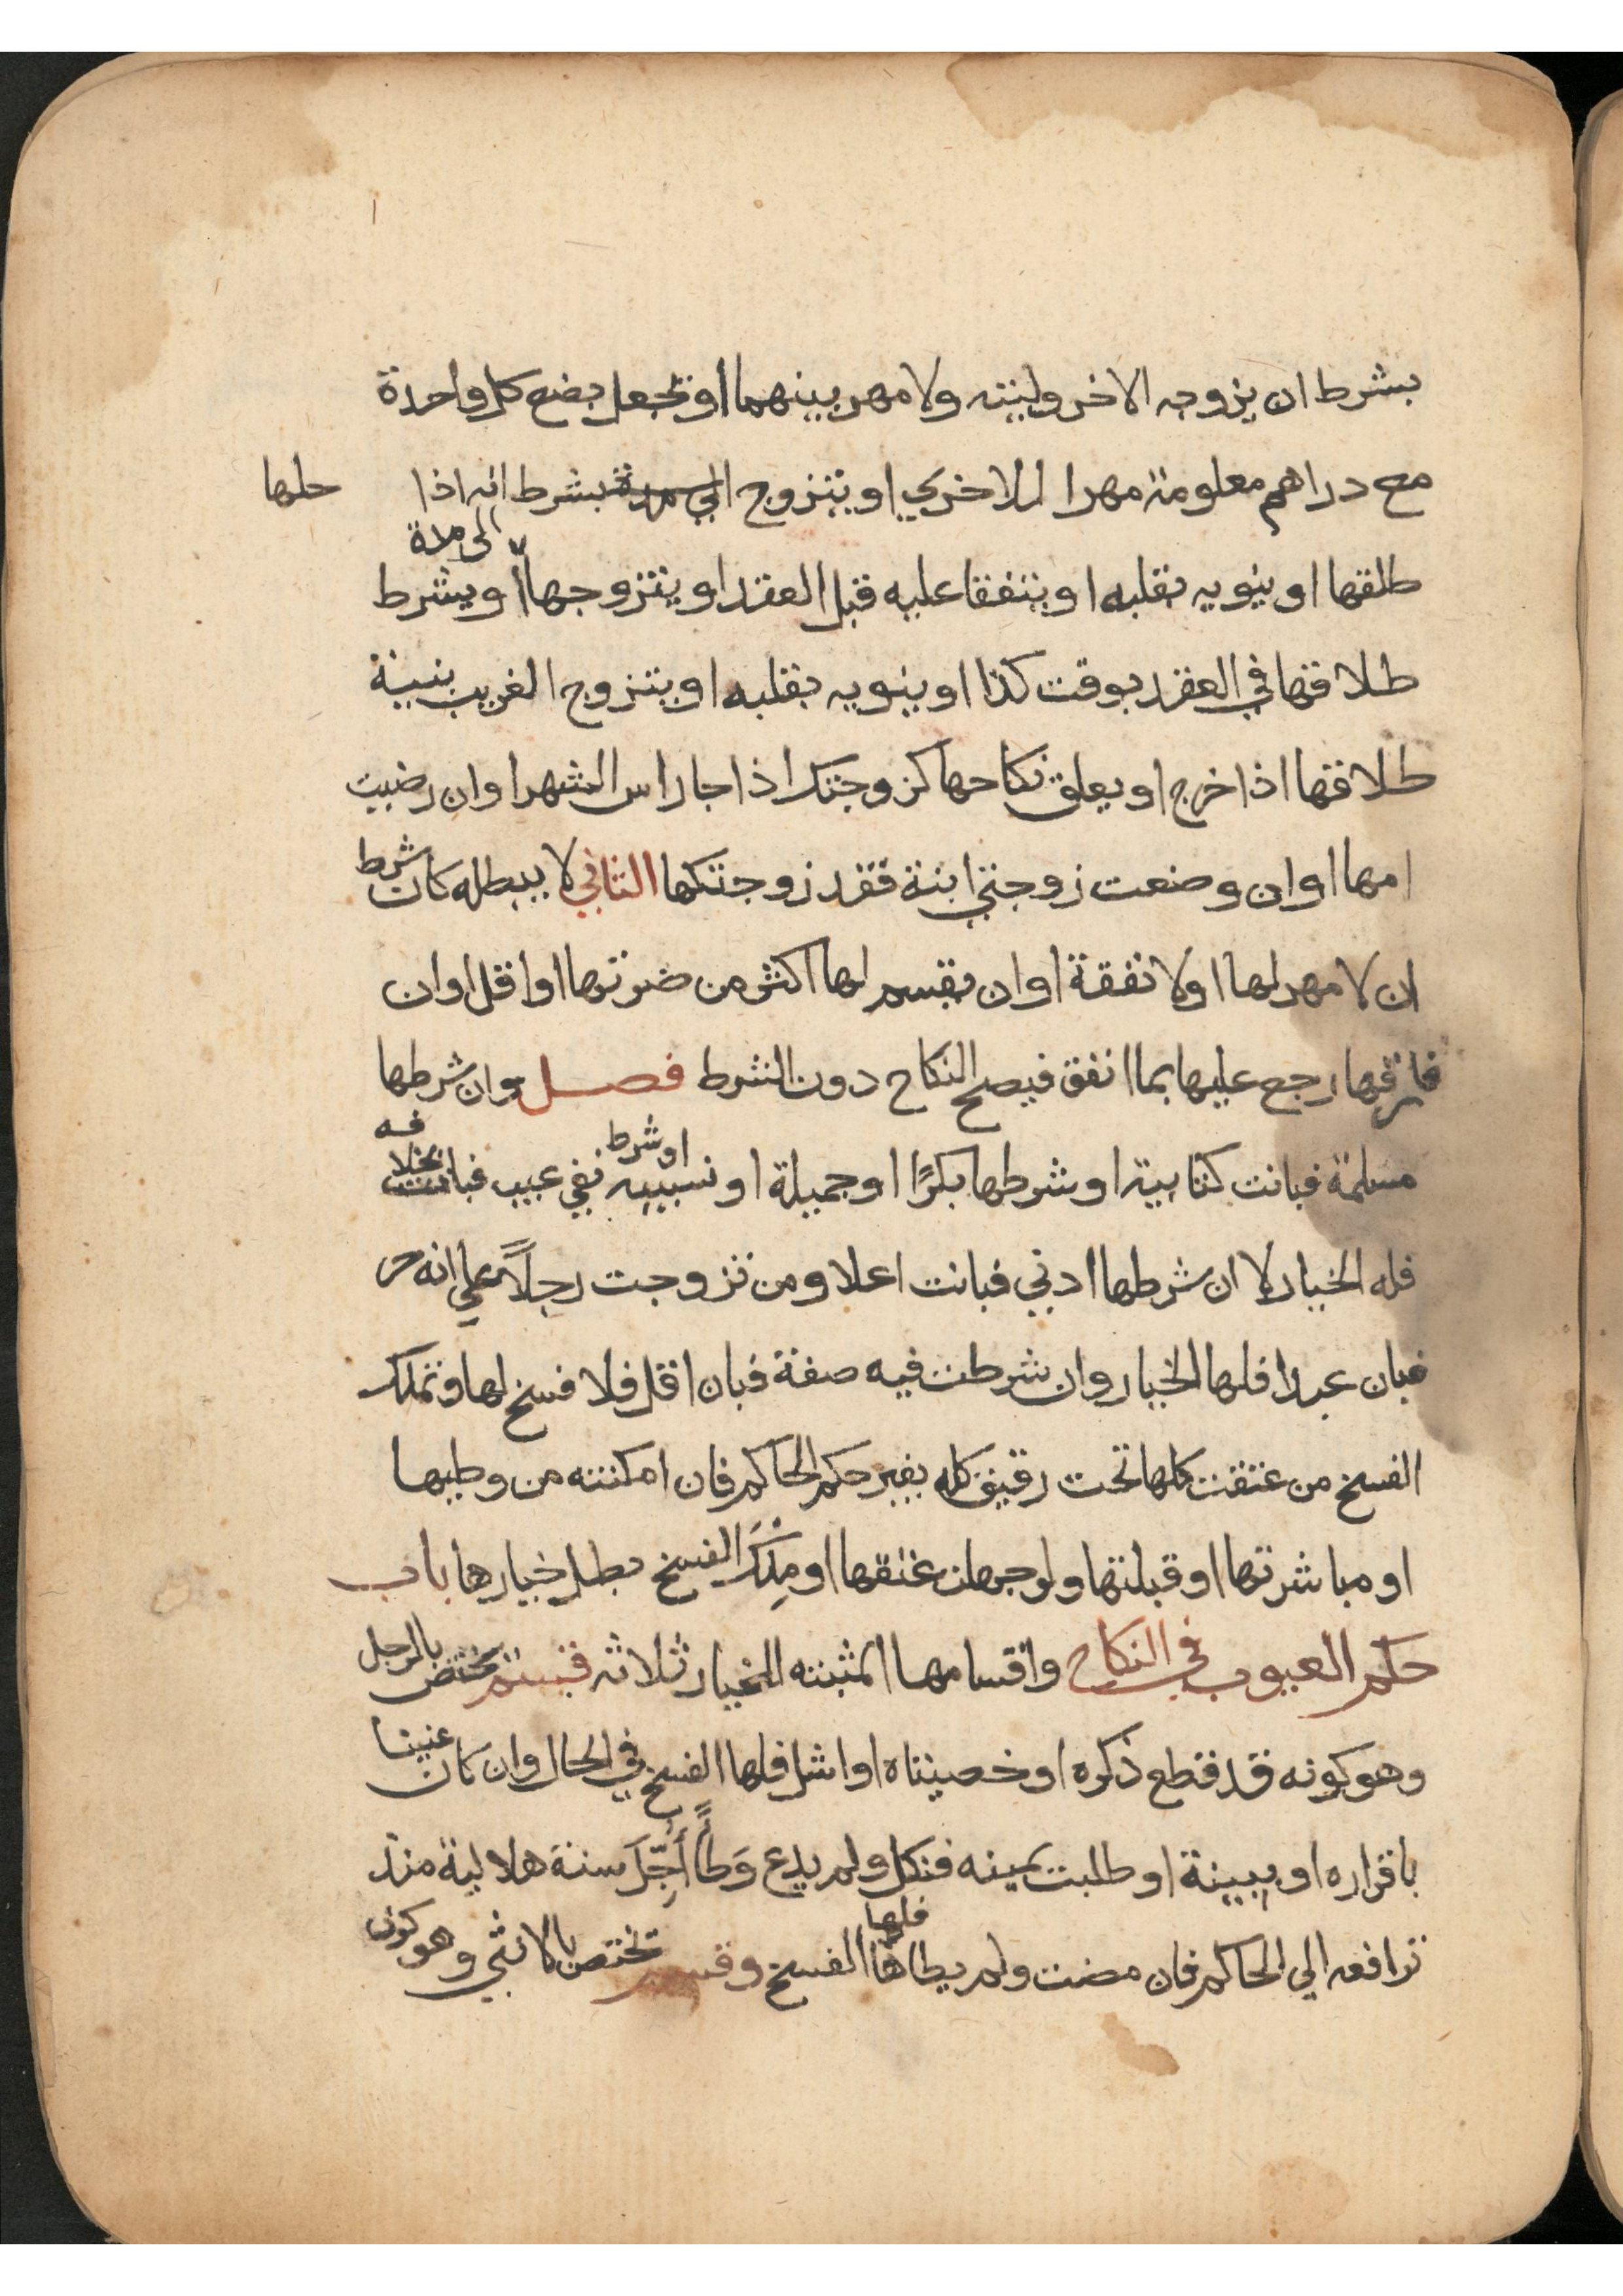 بشرط ان يزوجه الاخر وليته ولا مهر بينهما او يجعل بضع كل واحدة
مع دراهم معلومة مهرا للاخري او يتزوج الي مدة بشرط انه اذا حلها
طلقها او ينويه بقلبه او يتفقا عليه قبل العقد او يتزوجها الى مدة او يشرط
طلاقها في العقد بوقت كذا او ينويه بقلبه او يتزوج الغريب بنية
طلاقها اذا خرج او يعلق نكاحها كزوجتك اذا جا راس الشهر او ان رضيت
امها او ان وضعت زوجتي ابنة فقد زوجتكها الثاني لا يبطله كان شرط
ان لا مهر لها او لا نفقة او ان يقسم لها اكثر من ضرتها او اقل او ان
فارقها رجع عليها بما انفق فيصح النكاح دون الشرط فصل وان شرطها
مسلمة فبانت كتابية او شرطها بكرًا او جميلة او نسيبه او شرط نفي عيب فبانت بخلافه
فله الخيار لا ان شرطها ادني فبانت اعلا ومن تزوجت رجلاً علي انه حر
فبان عبدا فلها الخيار وان شرطت فيه صفة فبان اقل فلا فسخ لها وتملك
الفسخ من عتقت كلها تحت رقيق كله بغير حكم الحاكم فان امكنته من وطيها
او مباشرتها او قبلتها ولو جهلت عتقها او مِلكَ الفسخ بطل خيارها باب
حكم العيوب في النكاح واقسامها المثبته للخيار ثلاثه قسم يختص بالرجل
وهو كونه قد قطع ذكره او خصيتاه او اشل فلها الفسخ في الحال وان كان عنينا
باقراره او ببينة او طلبت يمينه فنكل ولم يدع وَطأً أُجِّلَ سنة هلالية منذ
ترافعه الي الحاكم فان مضت ولم يطاها فلها الفسخ وقسم تختص بالانثي وهو كون